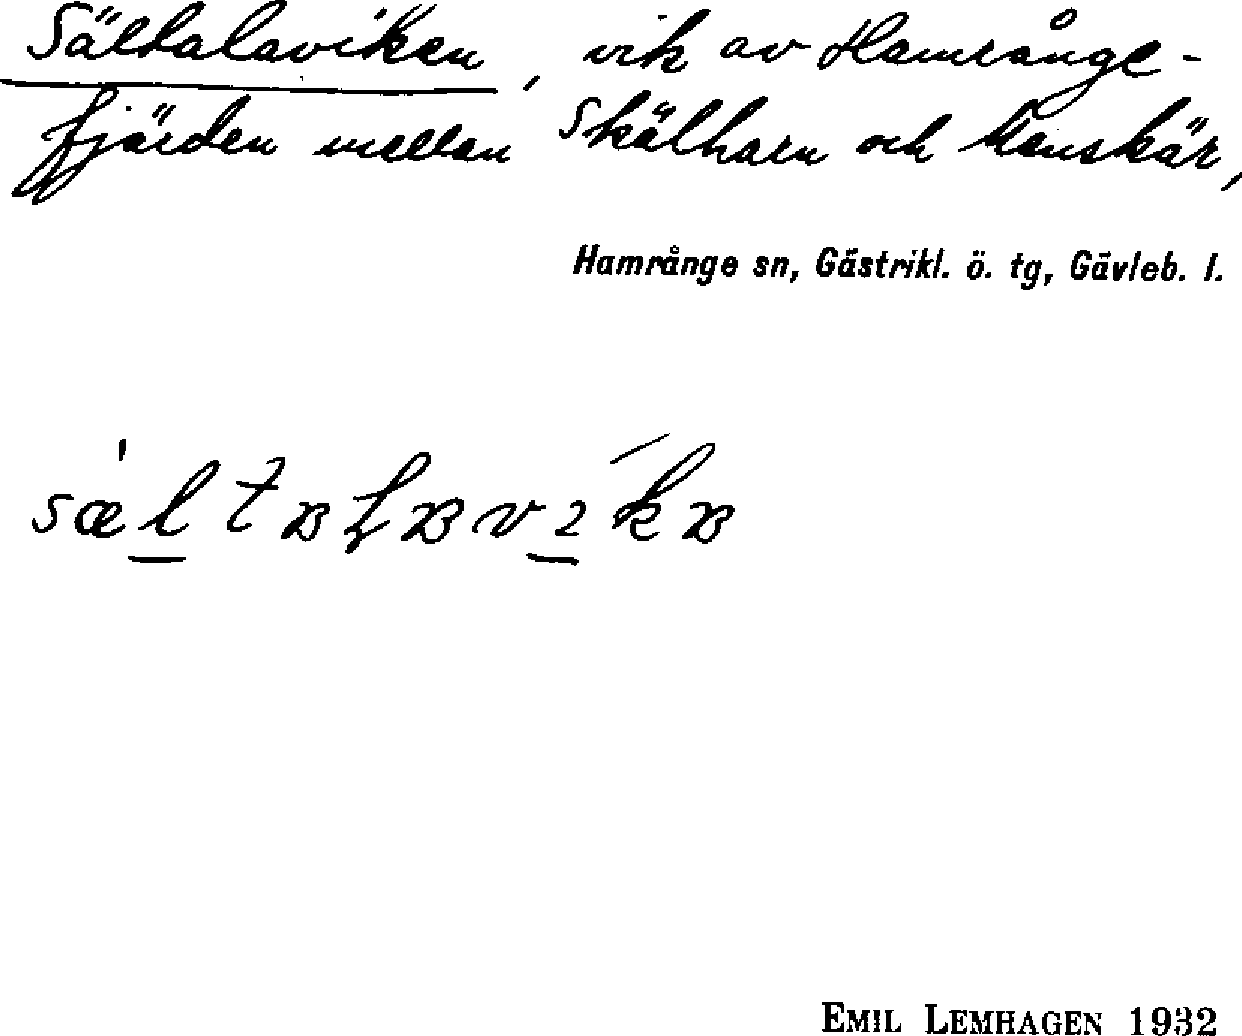 Sältalaviken, vik av Hamrånge-
fjärden mellan Skälharn och Renskär,
Hamrånge sn, Gästrikl. ö. tg, Gävleb. l.
EMIL LEMHAGEN 1932